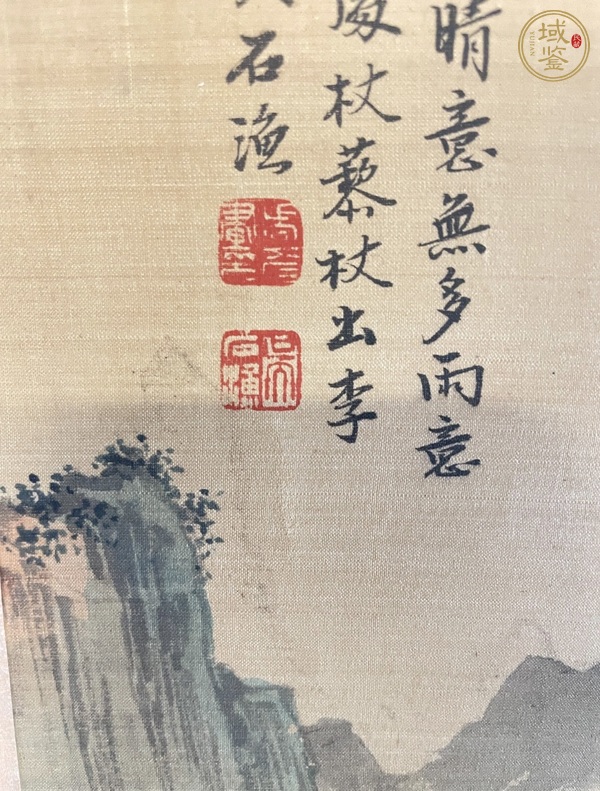 晴意無多雨意
杖藜杖出李
石漁
域鑒
YUJIAN